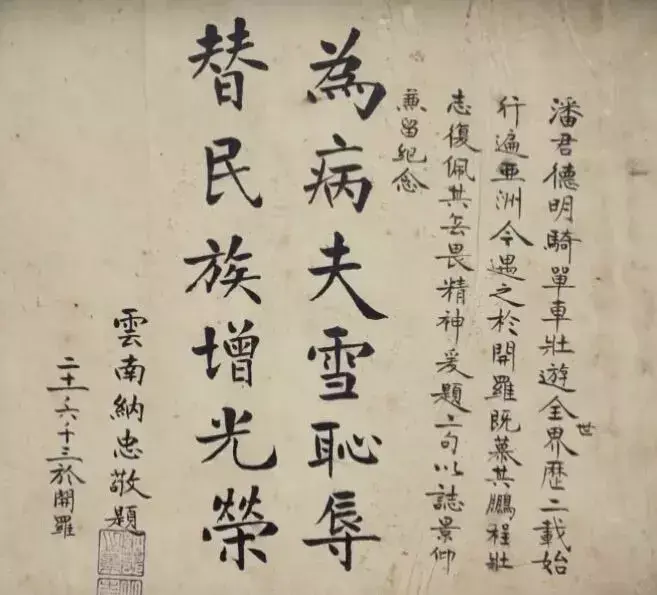 潘君德明騎單車壯遊全世界歷二載始
行遍亞洲今遇之於開羅既慕其鵬程壯
志復佩其無畏精神爰題二句以誌景仰
兼留紀念
為病夫雪恥辱
替民族增光榮
雲南納忠敬題
二十一、六、十三於開羅